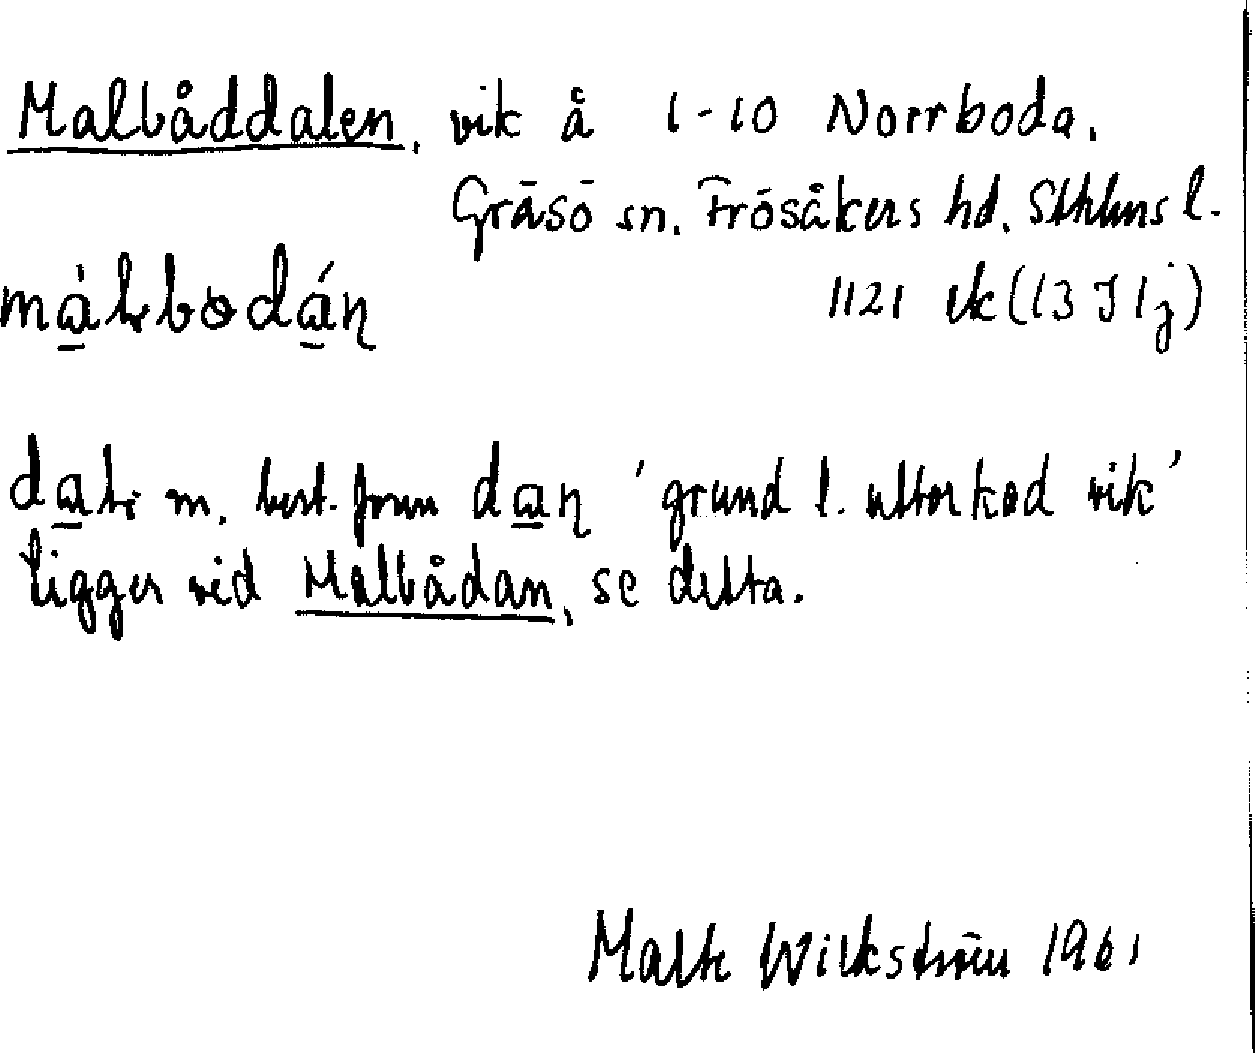 Malbåddalen, vik å 1-10 Norrboda.
Gräsö sn. Frösåkers hd. Sthlms l.
1121 ek (13 I 1j)
dal m. best. form dan 'grund l. uttorkad vik'
ligger vid Malbådan, se detta.
Malte Wilkström 1961